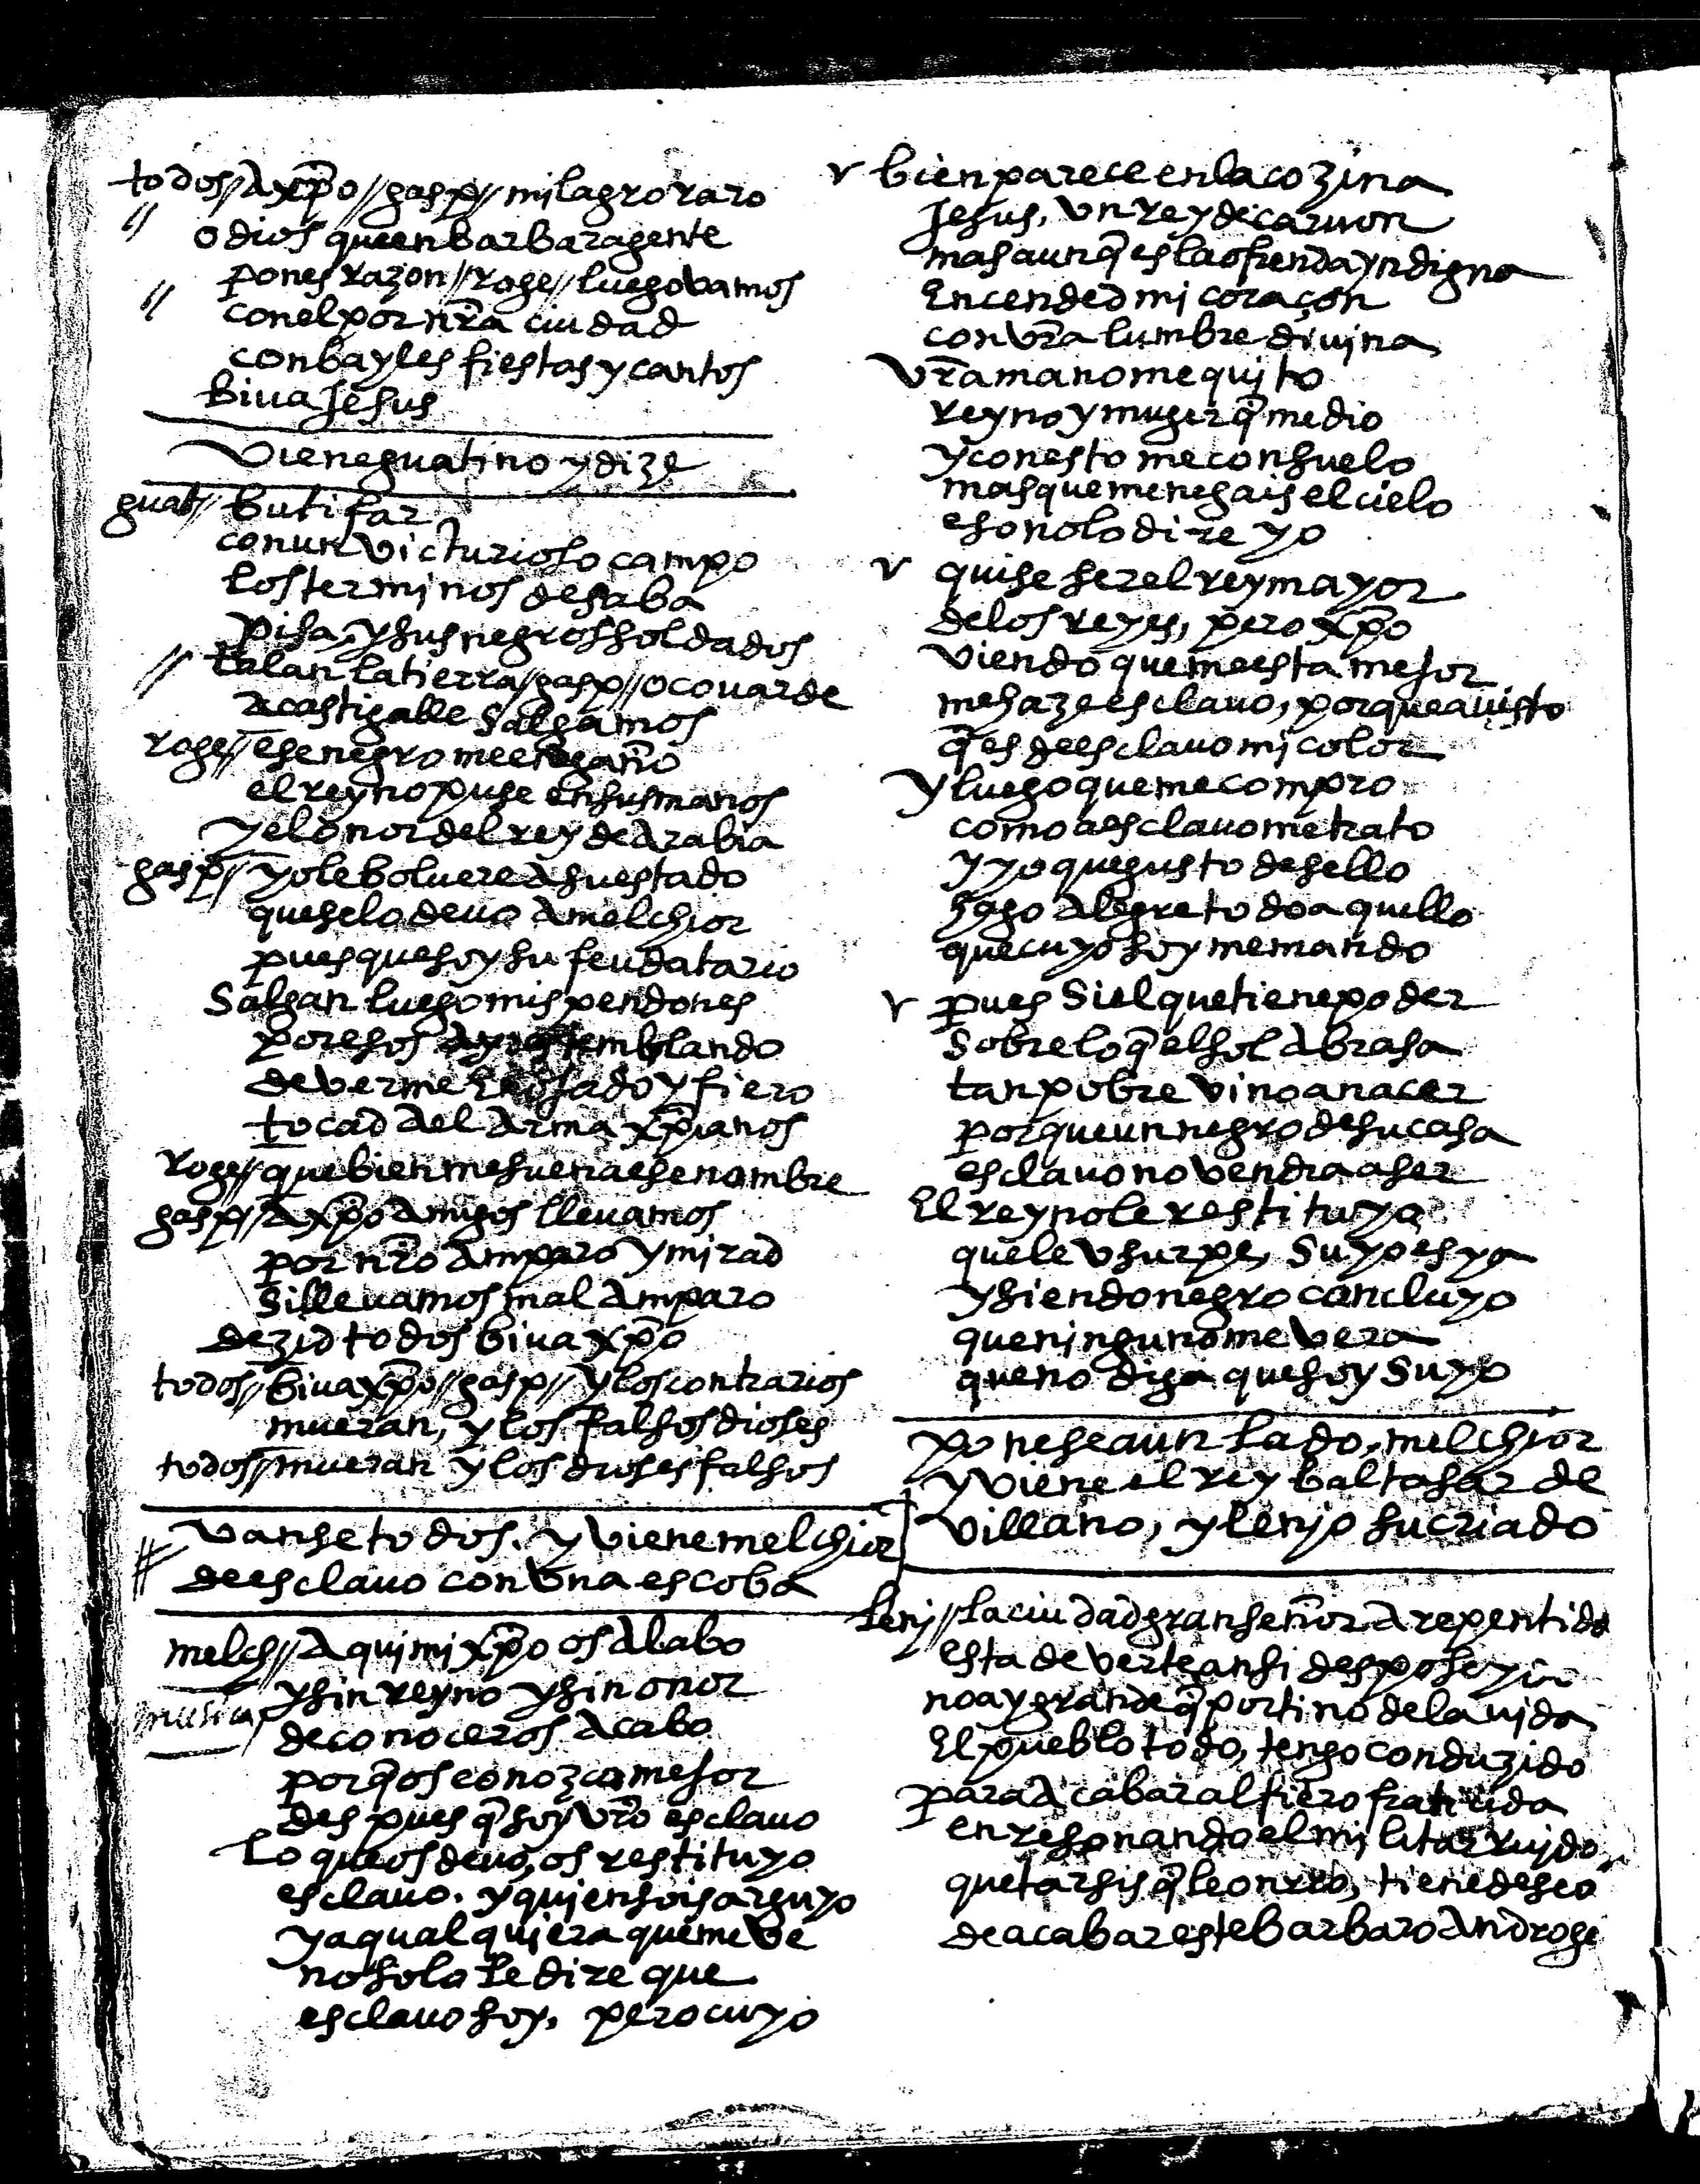 todos // A xp̄o // gasp // milagro raro
// o dios que en barbara gente
pones razon // roge // luego vamos
// con el por nr̄a ciudad
con bayles fiestas y cantos
biua Jesus
Viene guatino y dize
guat // butifar
con un victurioso campo
los terminos de saba
pisa, y sus negros soldados
// talan la tierra // gasp // o couarde
a castigalle salgamos
roge // ese negro me engaño
el reyno puse en sus manos
y el onor del rey de Arabia
gasp // yo le boluere A su estado
que se lo deuo A melchior
pues que soy su feudatario
Salgan luego mis pendones
por esos temblando
de verme enojado y fiero
tocad Al Arma xp̄ianos
roge // que bien me suena ese nombre
gasp // A xp̄o Amigos lleuamos
por nr̄o Amparo y mirad
si lleuamos mal Amparo
dezid todos biua xp̄o
todos // biua xp̄o // gasp // y los contrarios
mueran, y los falsos dioses
todos // mueran y los dioses falsos
vanse todos. y viene melchior
de esclauo con vna escoba
melch // Aqui mi xp̄o os Alabo
musica y sin reyno y sin onor
de conoceros Acabo
porq̄ os conozca mejor
despues q̄ soy vr̄o esclauo
Lo que os deuo, os restituyo
esclauo. y quien sois arguyo
y a qual quiera que me ve
no solo le dire que
esclauo soy, pero cuyo
v bien parece en la cozina
Jesus, vn rey de caruon
mas aunq̄ es la ofrenda yndigna
Encended mi coraçon
con vr̄a lumbre diuina
Vr̄a mano me quito
reyno y muger q̄ me dio
y con esto me consuelo
mas que me negais el cielo
eso no lo dire yo
v quise ser el rey mayor
de los reyes, pero xp̄o
viendo que me esta mejor
me haze esclauo, porque a uisto
q̄ es de esclauo mi color
y luego que me compro
como a esclauo me trato
y yo que gusto de sello
hago Alegre todo aquello
que cuyo soy me mando
v pues si el que tiene poder
sobre lo q̄ el sol Abrasa
tan pobre vino a nacer
porque un negro de su casa
esclauo no vendra a ser
El reyno le restituyo
que le vsurpe, suyo es ya
y siendo negro concluyo
que ninguno me vera
que no diga que soy suyo
ponese a un lado, melchior
y viene el rey baltasar de
villano, y lenjo su criado
lenj // la ciudad gran señor Arepentida
esta de verte ansi desposeyio
no ay grande q̄ por ti no de la uida
El pueblo todo, tengo conduzido
para Acabar al fiero fratricida
en resonando el militar ruido,
que tarsis q̄ leonres, tiene deseo
de acabar este barbaro Androge